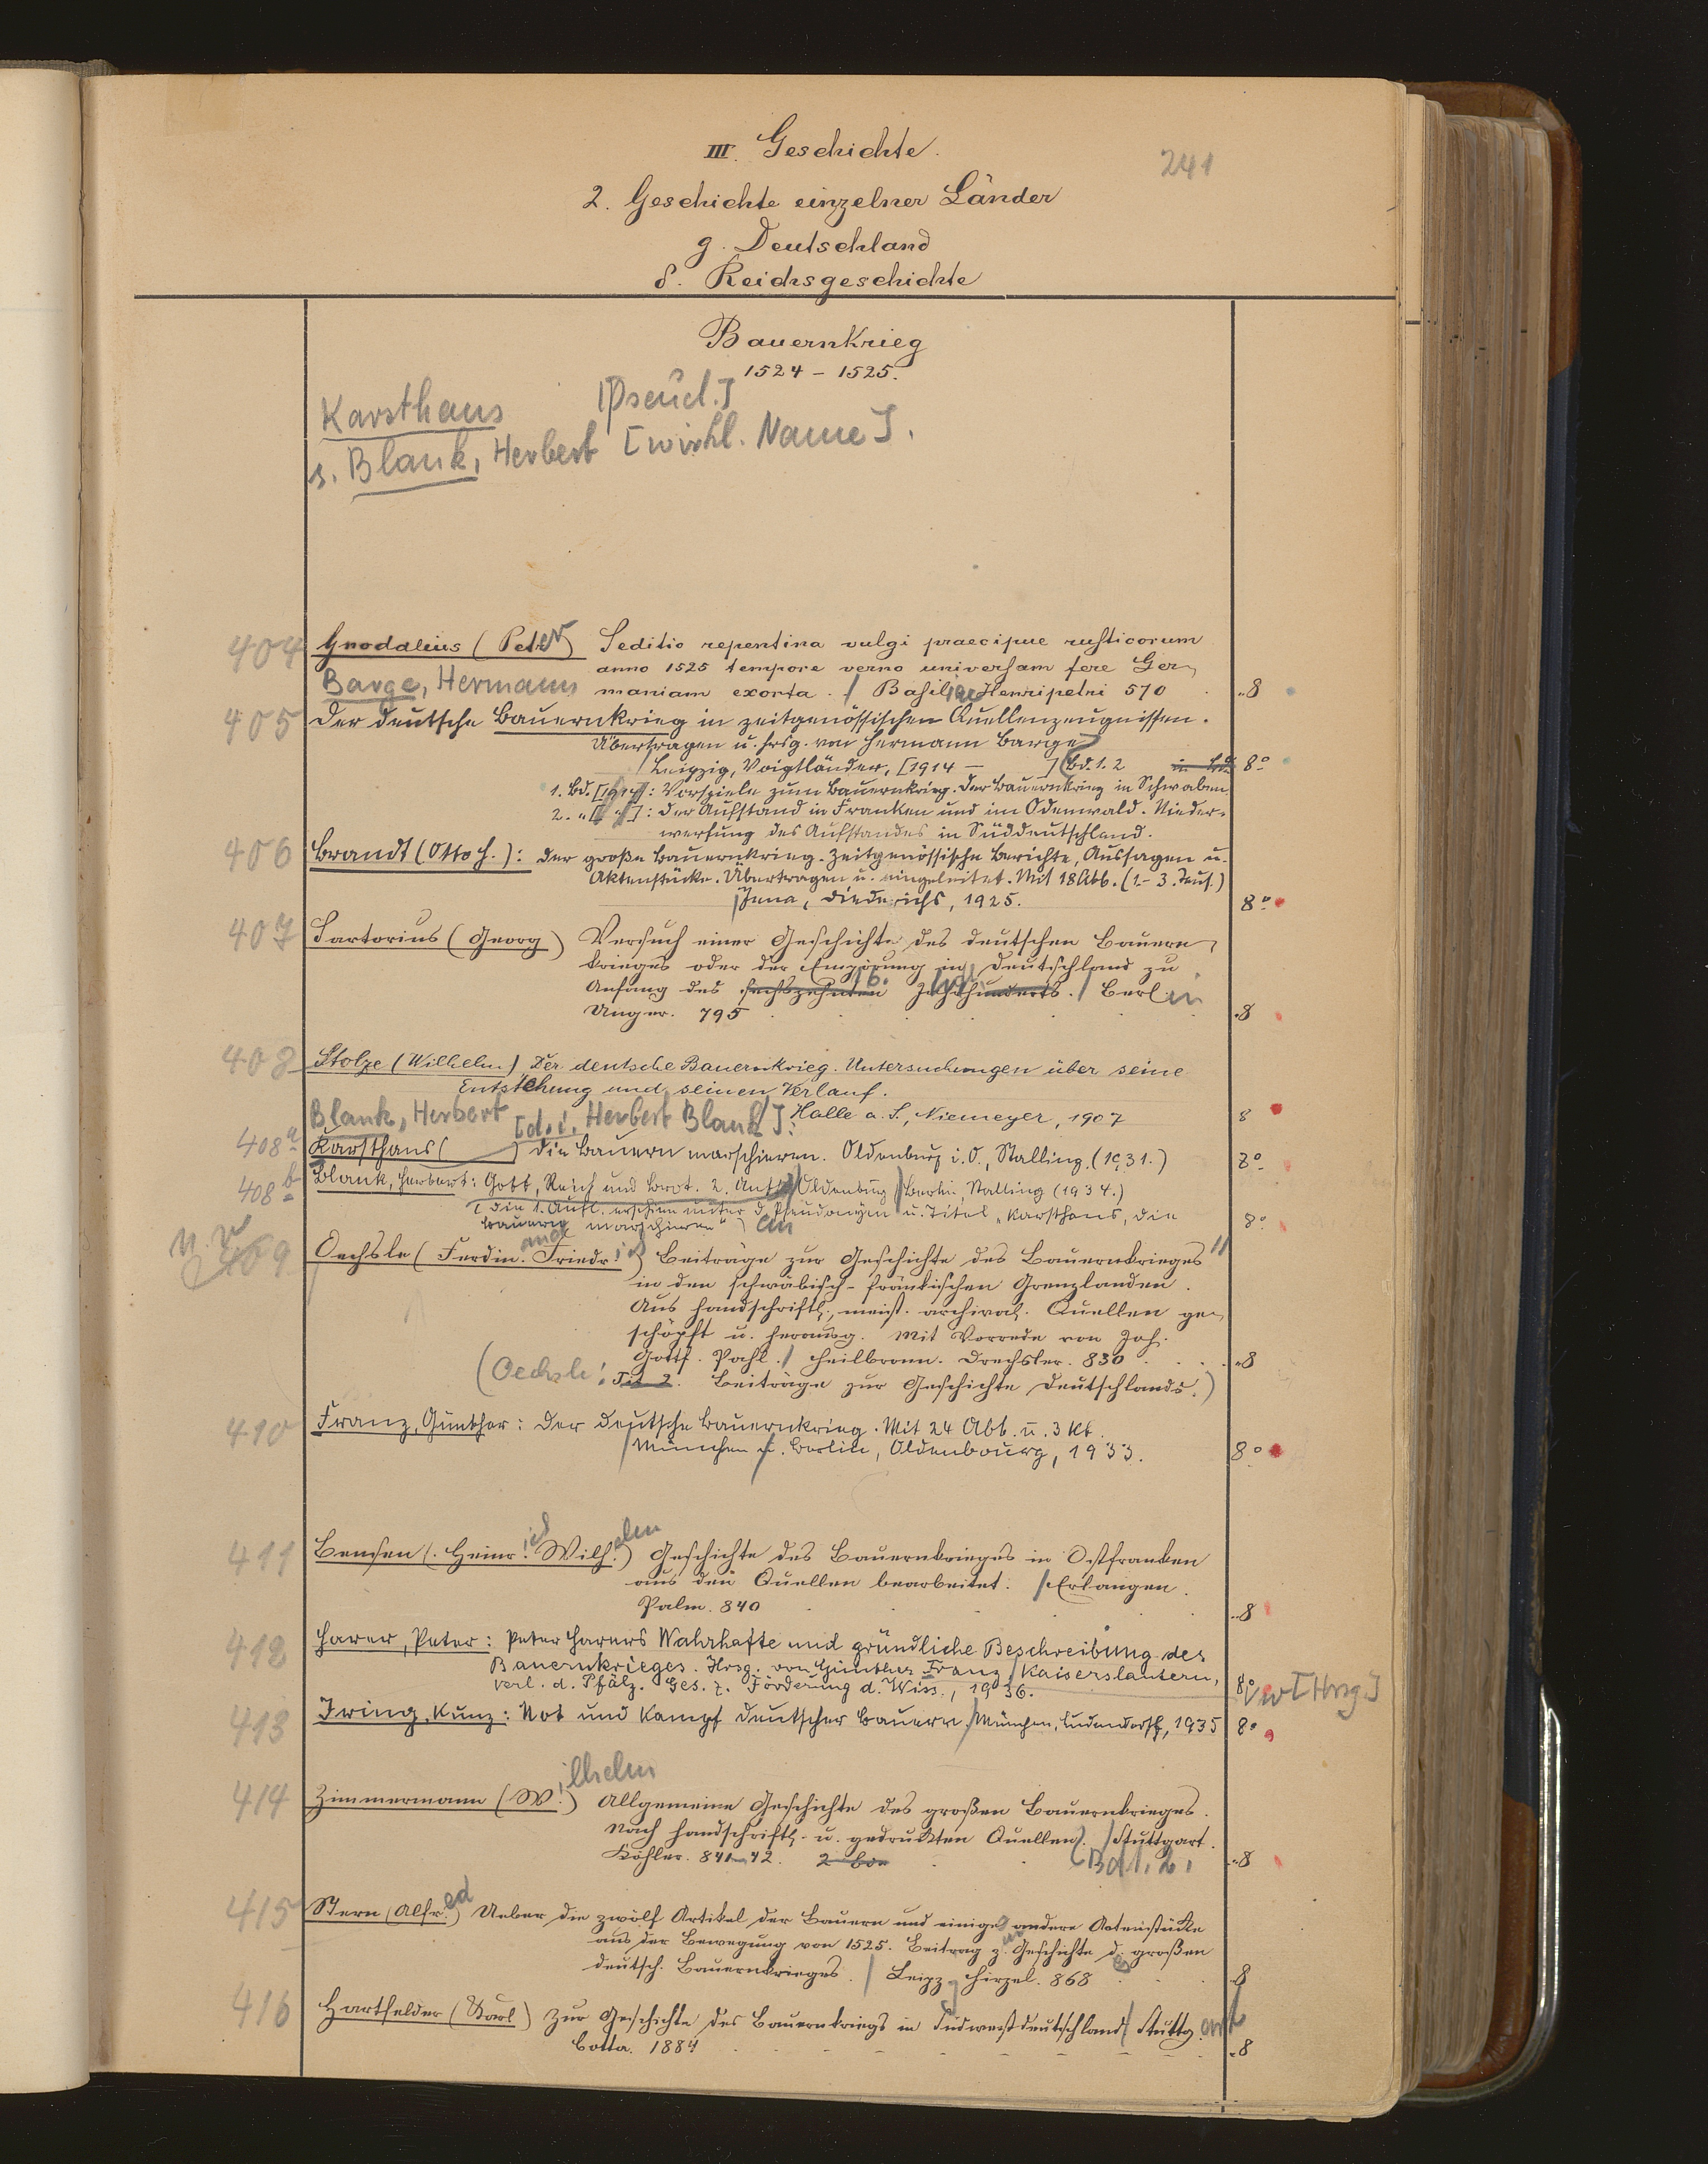 III. Geschichte.
241
2. Geschichte einzelner Länder
g. Deutschland
δ. Reichsgeschichte
Bauernkrieg
1524 – 1525.
Karsthaus [Pseud.]
s. Blank, Herbert [wirkl. Name].
404 Gnodalius (Peter) Seditio repentina vulgi praecipue rusticorum
anno 1525 tempore verno universam fere Ger-
Barge, Hermann maniam exorta. / Basileae Henripetri 570 . „8
405 Der deutsche Bauernkrieg in zeitgenössischen Quellenzeugnissen.
Übertragen u. hrsg. von Hermann Barge
/ Leipzig, Voigtländer, [1914 – ] (Bd. 1. 2 8°
1. Bd. [1914]: Vorspiele zum Bauernkrieg. Der Bauernkrieg in Schwaben.
2. „ [ „ ]: Der Aufstand in Franken und im Odenwald. Nieder-
werfung des Aufstandes in Süddeutschland.
406 Brandt (Otto H.): Der große Bauernkrieg. Zeitgenössische Berichte, Aussagen u.
Aktenstücke. Übertragen u. eingeleitet. Mit 18 Abb. (1.– 3. Taus.)
/ Jena, Diederichs, 1925. 8°
407 Sartorius (Georg) Versuch einer Geschichte des deutschen Bauern-
krieges oder der Empörung in Deutschland zu
Anfang des sechszehnten 16. Jahrhunderts. / Berlin
Unger. 795 . . . . „8
408 Stolze (Wilhelm) Der deutsche Bauernkrieg. Untersuchungen über seine
Entstehung und seinen Verlauf.
Halle a. S., Niemeyer, 1907 8
Blank, Herbert [d. i. Herbert Blank]:
408a Karsthans ( ) Die Bauern marschieren. Oldenburg i. O., Stalling. (1931.) 8°
408b Blank, Herbert: Gott, Reich und Brot. 2. Aufl. / Oldenburg / Berlin, Stalling (1934.)
(Die 1. Aufl. erschien unter d. Pseudonym u. Titel „Karsthans, Die
Bauern marschieren“) 8°
409 Oechsle (Ferdinand Friedrich) Beiträge zur Geschichte des Bauernkrieges
in den schwäbisch-fränkischen Grenzlanden.
Aus handschriftl., meist. archival. Quellen ge-
schöpft u. herausg. Mit Vorrede von Joh.
Gottf. Pahl. / Heilbronn. Drechsler. 830 . . . „8
(Oechsle: Tit 2. Beiträge zur Geschichte Deutschlands.)
410 Franz, Günther: Der deutsche Bauernkrieg. Mit 24 Abb. u. 3 Kt.
/ München u. Berlin, Oldenbourg, 1933. 8°
411 Bensen (Heinrich Wilhelm) Geschichte des Bauernkrieges in Ostfranken
aus den Quellen bearbeitet. / Erlangen.
Palm. 840 . . . „8
412 Harer, Peter: Peter Harers Wahrhafte und gründliche Beschreibung des
Bauernkrieges. Hrsg. von Günther Franz / Kaiserslautern,
Verl. d. Pfälz. Ges. z. Förderung d. Wiss., 1936. 8° Vw [Hrsg]
413 Iring, Kunz: Not und Kampf deutscher Bauern / München, Ludendorff, 1935 8°
414 Zimmermann (Wilhelm) Allgemeine Geschichte des großen Bauernkrieges.
Nach handschriftl. u. gedruckten Quellen. / Stuttgart.
Köhler. 841–42. 2 Bde . . (Bd 1. 2. „8
415 Stern (Alfred) Ueber die zwölf Artikel der Bauern und einige andere Actenstücke
aus der Bewegung von 1525. Beitrag z. Geschichte d. großen
deutsch. Bauernkrieges. / Leipzg Hirzel. 868 . . . „8
416 Hartfelder (Karl) Zur Geschichte des Bauernkriegs in Südwestdeutschland / Stuttgart
Cotta. 1884 . . . „8